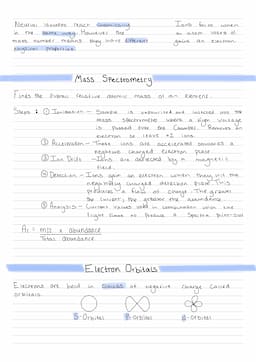 Neutral isotopes react chemically
in the same way. However the
mass number means they have different
physical properties.
Ions form when
an atom loses or
gains an electron.
Mass Spectrometry
Finds the overall relative atomic mass of an element.
Steps: ① Ionisation - Sample is vapourised and injected into the
mass spectrometer where a high voltage
is passed over the chamber. Removes an
electron to leave +1 ions.
② Acceleration - These ions are accelerated towards a
negatively charged electron plate.
③ Ion Drift - Ions are deflected by a magnetic
field.
④ Detection - Ions gain an electron when they hit the
negatively charged detection plate. This
produces a flow of charge. The greater
the current, the greater the abundance.
⑤ Analysis - Current values used in combination with the
flight times to produce a spectra print-out
Ar = m/z x abundance
Total abundance
Electron Orbitals
Electrons are held in clouds of negative charge called
orbitals.
S-Orbital
P-Orbital